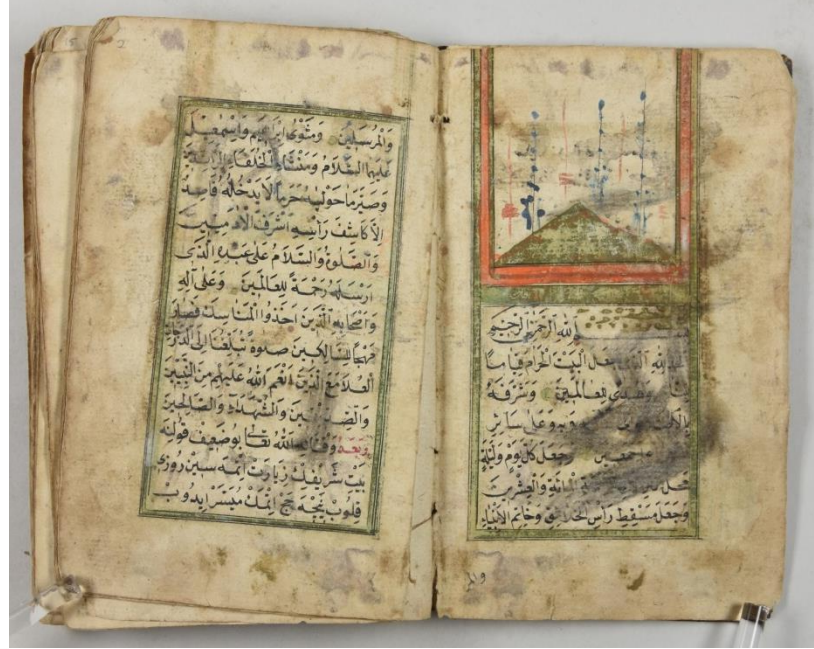 الله الرحمن الرحيم
لله الذي جعل البيت الحرام قياما
وهدى للعالمين وشرفه
وعلى سائر
اجمعين وجعل كل يوم وليلة
المائة والعشرين
وجعل مسقط رأس الخلائق وخاتم الأنبياء
والم
والمرسلين ومثوى ابراهيم واسمعيل
عليهما السلام ومنشاء الخلفاء
وصير ما حوله حرما لا يدخله قاصد
الا كاشف رأسه اشرف الآدميين
والصلوة والسلام على عبده الذي
ارسله رحمة للعالمين وعلى آله
واصحابه الذين اخذوا المناسك فصار
منهجا للسالكين صلوة تبلغنا الى الدرجة
العلا مع الذين انعم الله عليهم من النبيين
والصديقين والشهداء والصالحين
وبعد الله تعا بو ضعيف قولنه
بيت شريفك زيارت اتمه سين روزى
قلوب نيجه حج اتمك ميسر ايدوب